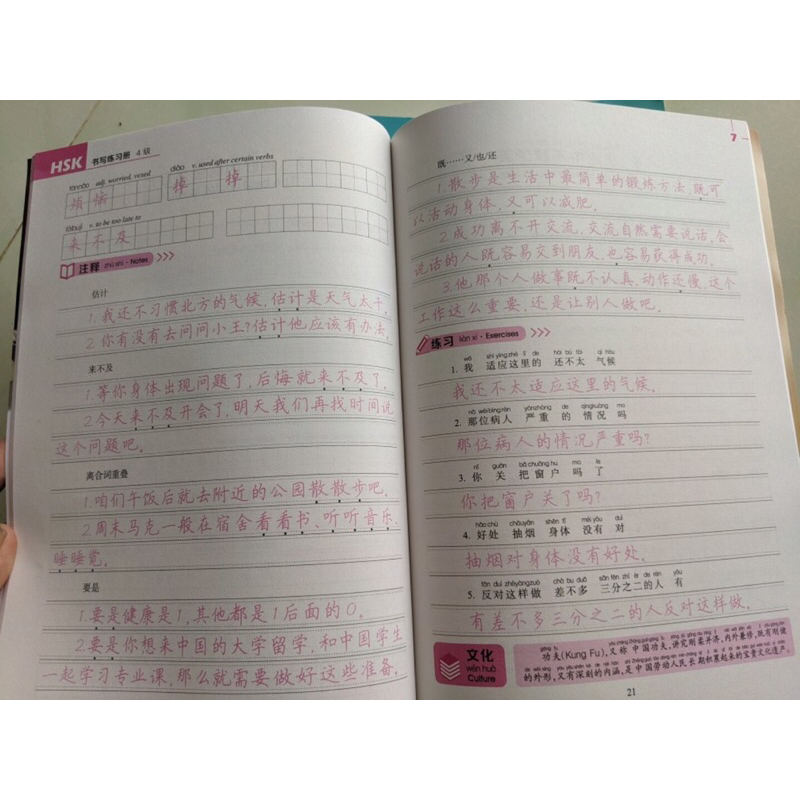 HSK 书写练习册 4 级
fánnǎo adj. worried, vexed
烦 恼
diào v. used after certain verbs
掉 掉
láibují v. to be too late to
来 不 及
注释 zhù shì · Notes
估计
1.我还不习惯北方的气候,估计是天气太干。
2.你有没有去问问小王?估计他应该有办法。
来不及
1.等你身体出现问题了,后悔就来不及了。
2.今天来不及开会了,明天我们再找时间说
这个问题吧。
离合词重叠
1.咱们午饭后就去附近的公园散散步吧。
2.周末马克一般在宿舍看看书、听听音乐、
睡睡觉。
要是
1.要是健康是1,其他都是1后面的0。
2.要是你想来中国的大学留学,和中国学生
一起学习专业课,那么就需要做好这些准备。
7
既……又/也/还
1.散步是生活中最简单的锻炼方法,既可
以活动身体,又可以减肥。
2.成功离不开交流,交流自然需要说话,会
说话的人既容易交到朋友,也容易获得成功。
3.他那个人做事既不认真,动作还慢,这个
工作这么重要,还是让别人做吧。
练习 liàn xí · Exercises
wǒ shì yìng zhè lǐ de hái bú tài qì hòu
1. 我 适应这里的 还不太 气候
我还不太适应这里的气候。
nà wèi bìng rén yánzhòng de qíngkuàng ma
2. 那位病人 严重 的 情况 吗
那位病人的情况严重吗?
nǐ guān bǎ chuāng hu ma le
3. 你 关 把窗户 吗 了
你把窗户关了吗?
hǎochù chōuyān shēn tǐ méi yǒu duì
4. 好处 抽烟 身体 没有 对
抽烟对身体没有好处。
fǎn duì zhèyàngzuò chà bu duō sān fēn zhī èr de rén yǒu
5. 反对这样做 差不多 三分之二的人 有
有差不多三分之二的人反对这样做。
文化
wén huà
Culture
功夫(Kung Fu),又称 中国功夫,讲究刚柔并济,内外兼修,既有刚健
的外形,又有深刻的内涵,是中国劳动人民长期积累起来的宝贵文化遗产。
21